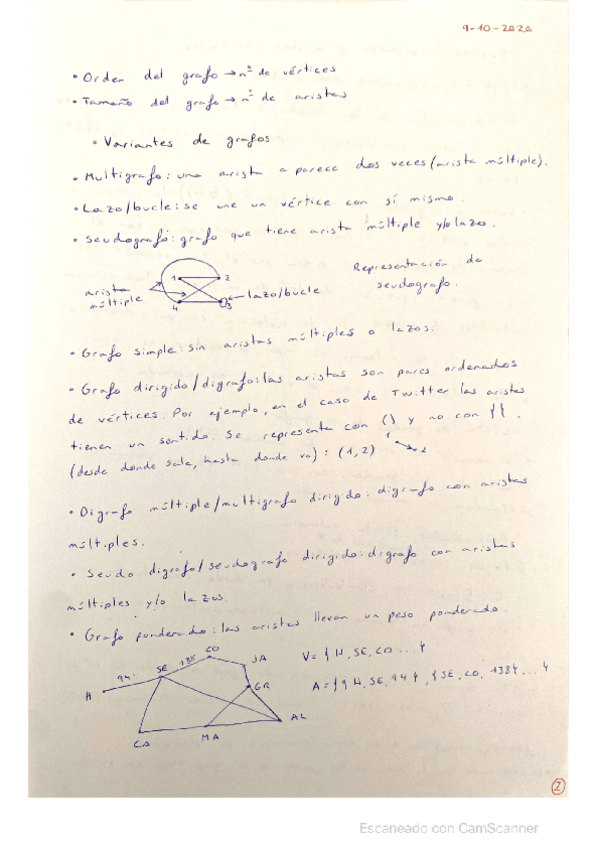 9-10-2020
• Orden del grafo → nº de vértices
• Tamaño del grafo → nº de aristas
• Variantes de grafos
• Multigrafo: una arista aparece dos veces (arista múltiple).
• Lazo/bucle: se une un vértice con sí mismo.
• Seudografo: grafo que tiene arista múltiple y/o lazo.
1 2
arista múltiple
4 3
lazo/bucle
Representación de
seudografo.
• Grafo simple: sin aristas múltiples o lazos.
• Grafo dirigido/digrafo: las aristas son pares ordenados
de vértices. Por ejemplo, en el caso de Twitter las aristas
tienen un sentido. Se representa con () y no con {}.
(desde donde sale, hasta donde va): (1,2) 1 2
• Digrafo múltiple/multigrafo dirigido: digrafo con aristas
múltiples.
• Seudo digrafo/seudografo dirigido: digrafo con aristas
múltiples y/o lazos.
• Grafo ponderado: las aristas llevan un peso ponderado.
H 94 SE 138 CO JA
GR
CA MA AL
V={H, SE, CO ...}
A={{H, SE, 94}, {SE, CO, 138} ...}
2
Escaneado con CamScanner